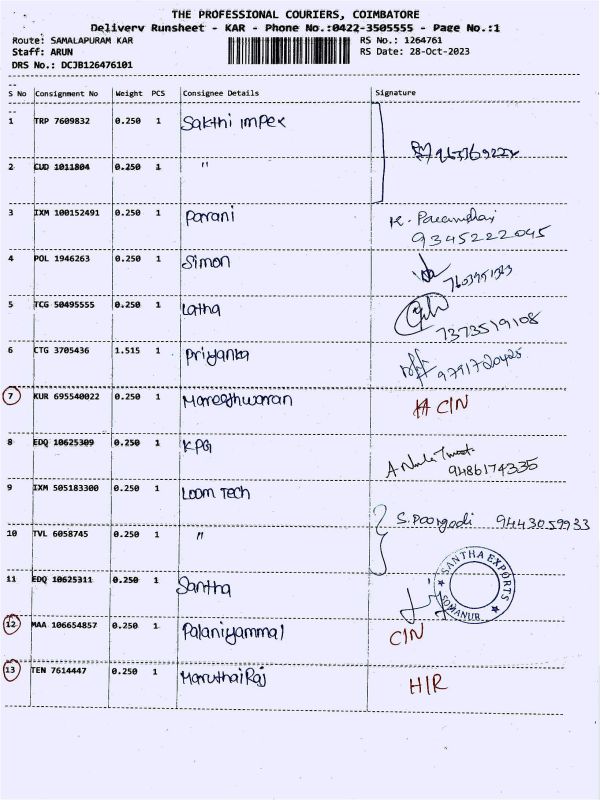 THE PROFESSIONAL COURIERS, COIMBATORE
Delivery Runsheet - KAR - Phone No.:0422-3505555 - Page No.:1
Route: SAMALAPURAM KAR RS No.: 1264761
Staff: ARUN RS Date: 28-Oct-2023
DRS No.: DCJB126476101
S No Consignment No Weight PCS Consignee Details Signature
1 TRP 7609832 0.250 1 Sakthi impex
2 CUD 1011804 0.250 1 "
3 IXM 100152491 0.250 1 Parani
9345222045
4 POL 1946263 0.250 1 Simon
5 TCG 50495555 0.250 1 Latha
7373519108
6 CTG 3705436 1.515 1 Priyanka
9791720425
7 KUR 695540022 0.250 1 CIN
8 EDQ 10625309 0.250 1 KPG
9486174335
9 IXM 505183300 0.250 1 Loom Tech
S. Poorgodi 9443059933
10 TVL 6058745 0.250 1 "
11 EDQ 10625311 0.250 1 Santha
SANTHA EXPORTS
SOMANUR.
12 MAA 106654857 0.250 1 Palaniyammal CIN
13 TEN 7614447 0.250 1 MaruthaiRaj HIR